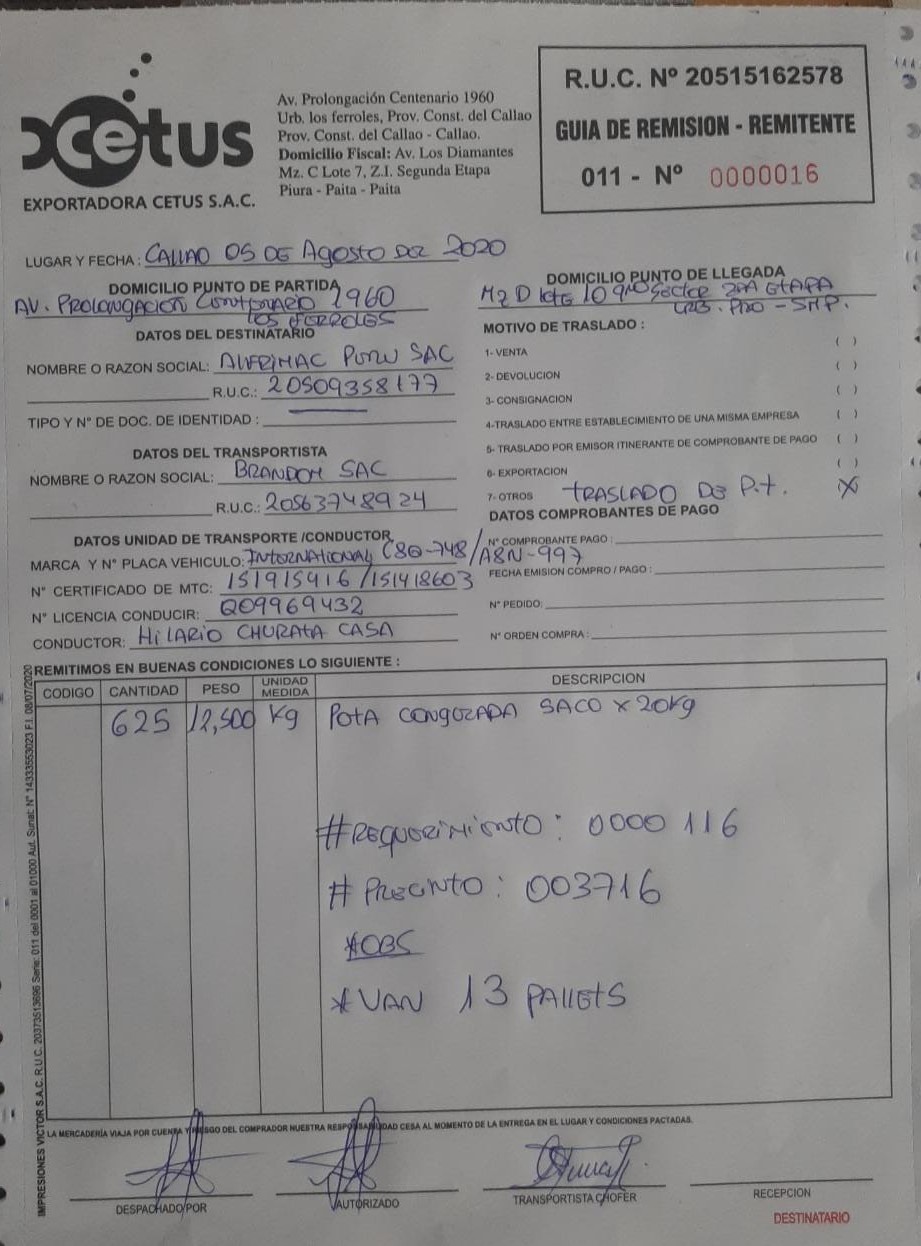 Cetus
EXPORTADORA CETUS S.A.C.
Av. Prolongación Centenario 1960
Urb. los ferroles, Prov. Const. del Callao
Prov. Const. del Callao - Callao.
Domicilio Fiscal: Av. Los Diamantes
Mz. C Lote 7, Z.I. Segunda Etapa
Piura - Paita - Paita
R.U.C. Nº 20515162578
GUIA DE REMISION - REMITENTE
011 - Nº 0000016
LUGAR Y FECHA : CALLAO 05 DE Agosto DEL 2020
DOMICILIO PUNTO DE PARTIDA
AV. PROLONGACION CENTENARIO 1960
LOS FERROLES
DOMICILIO PUNTO DE LLEGADA
MZ D lote 10 9no Sector 2DA ETAPA
URB. PRO - SMP.
DATOS DEL DESTINATARIO
NOMBRE O RAZON SOCIAL: PERU SAC
R.U.C.: 20509358177
TIPO Y N° DE DOC. DE IDENTIDAD :
MOTIVO DE TRASLADO :
1- VENTA ( )
2- DEVOLUCION ( )
3- CONSIGNACION ( )
4-TRASLADO ENTRE ESTABLECIMIENTO DE UNA MISMA EMPRESA ( )
5- TRASLADO POR EMISOR ITINERANTE DE COMPROBANTE DE PAGO ( )
6- EXPORTACION ( )
7- OTROS TRASLADO DE P.t. X
DATOS DEL TRANSPORTISTA
NOMBRE O RAZON SOCIAL: BRANDOM SAC
R.U.C.: 20563748924
DATOS UNIDAD DE TRANSPORTE /CONDUCTOR
MARCA Y N° PLACA VEHICULO: INTERNATIONAL C8Q-748/A8N-997
N° CERTIFICADO DE MTC: 151915416 /151418603
N° LICENCIA CONDUCIR: Q09969432
CONDUCTOR: HILARIO CHURATA CASA
DATOS COMPROBANTES DE PAGO
N° COMPROBANTE PAGO :
FECHA EMISION COMPRO / PAGO :
N° PEDIDO:
N° ORDEN COMPRA :
REMITIMOS EN BUENAS CONDICIONES LO SIGUIENTE :
CODIGO CANTIDAD PESO UNIDAD MEDIDA DESCRIPCION
625 12,500 Kg POTA CONGELADA SACO x 20kg
#REQUERIMIENTO : 0000 116
# PRECINTO : 003716
*OBS
* VAN 13 PALLETS
IMPRESIONES VICTOR S.A.C. R.U.C. 20373513696 Serie: 011 del 0001 al 01000 Aut. Sunat: N° 14333553023 F.I. 08/07/2020
LA MERCADERÍA VIAJA POR CUENTA Y RIESGO DEL COMPRADOR NUESTRA RESPONSABILIDAD CESA AL MOMENTO DE LA ENTREGA EN EL LUGAR Y CONDICIONES PACTADAS.
DESPACHADO POR
AUTORIZADO
TRANSPORTISTA CHOFER
RECEPCION
DESTINATARIO